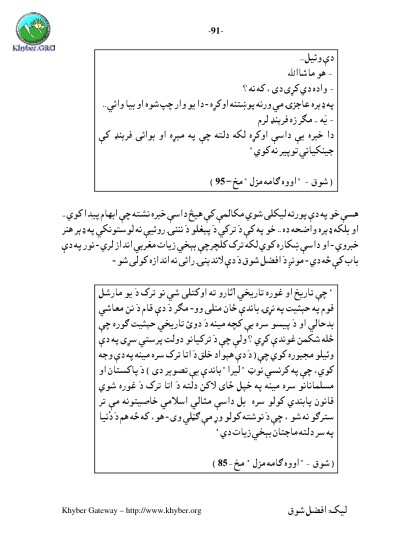 Khyber.ORG
-91-
دې وئيل..
- هو ماشاالله
- واده دې کړی دی ، که نه ؟
په ډېره عاجزۍ مې ورنه پوښتنه اوکړه - دا يو وار چپ شوه او بيا وائي..
- يَه - مګر زه فرېنډ لرم
دا خبره يې داسې اوکړه لکه دلته چې په مېړه او بوائی فرېنډ کې
جينکيانې توپير نه کوي "
( شوق - " اووه ګامه مزل " مخ – 95 )
هسې خو په دې پورته ليکلی شوي مکالمې کې هيڅ داسې خبره نشته چې ابهام پېدا کوي..
او بلکه ډېره واضحه ده.. خو په کې دَ ترکي دَ پېغلو دَ نننۍ روئيې نه لوستونکي په ډېر هنر
خبروي - او داسې ښکاره کوي لکه ترک کلچر چې بېخي زيات مغربي انداز لري - نور په دې
باب کې څه دي - مونږ دَ افضل شوق دَ دې لاندېنۍ رائی نه اندازه کولی شو -
" چې تاريخ او غوره تاريخي آثارو ته اوکتلی شي نو ترک دَ يو مارشل
قوم په حېثيت په نړۍ باندې ځان منلی وو - مګر دَ دې قام دَ نن معاشي
بدحالي او دَ پېسو سره بې کچه مينه دَ دوئ تاريخي حېثيت ګوره چې
څله شکمن غوندې کړي ؟ ولې چې دَ ترکيانو دولت پرستي سړی په دې
وئيلو مجبوره کوي چې ( دَ دې هېواد خلق دَ اتا ترک سره مينه په دې وجه
کوي ، چې په کرنسي نوټ " ليرا " باندې يې تصوير دی ) دَ پاکستان او
مسلمانانو سره مينه په خپل ځای لاکن دلته دَ اتا ترک دَ غوره شوي
قانون پابندي کولو سره بل داسې مثالي اسلامي خاصيتونه مې تر
سترګو نه شو ، چې دَ نوشته کولو وړ مې ګڼلي وی - هو ، که څه هم دَ دُنيا
په سر دلته ماجتان بېخي زيات دي "
( شوق - " اووه ګامه مزل " مخ - 85 )
Khyber Gateway – http://www.khyber.org
ليک: افضل شوق